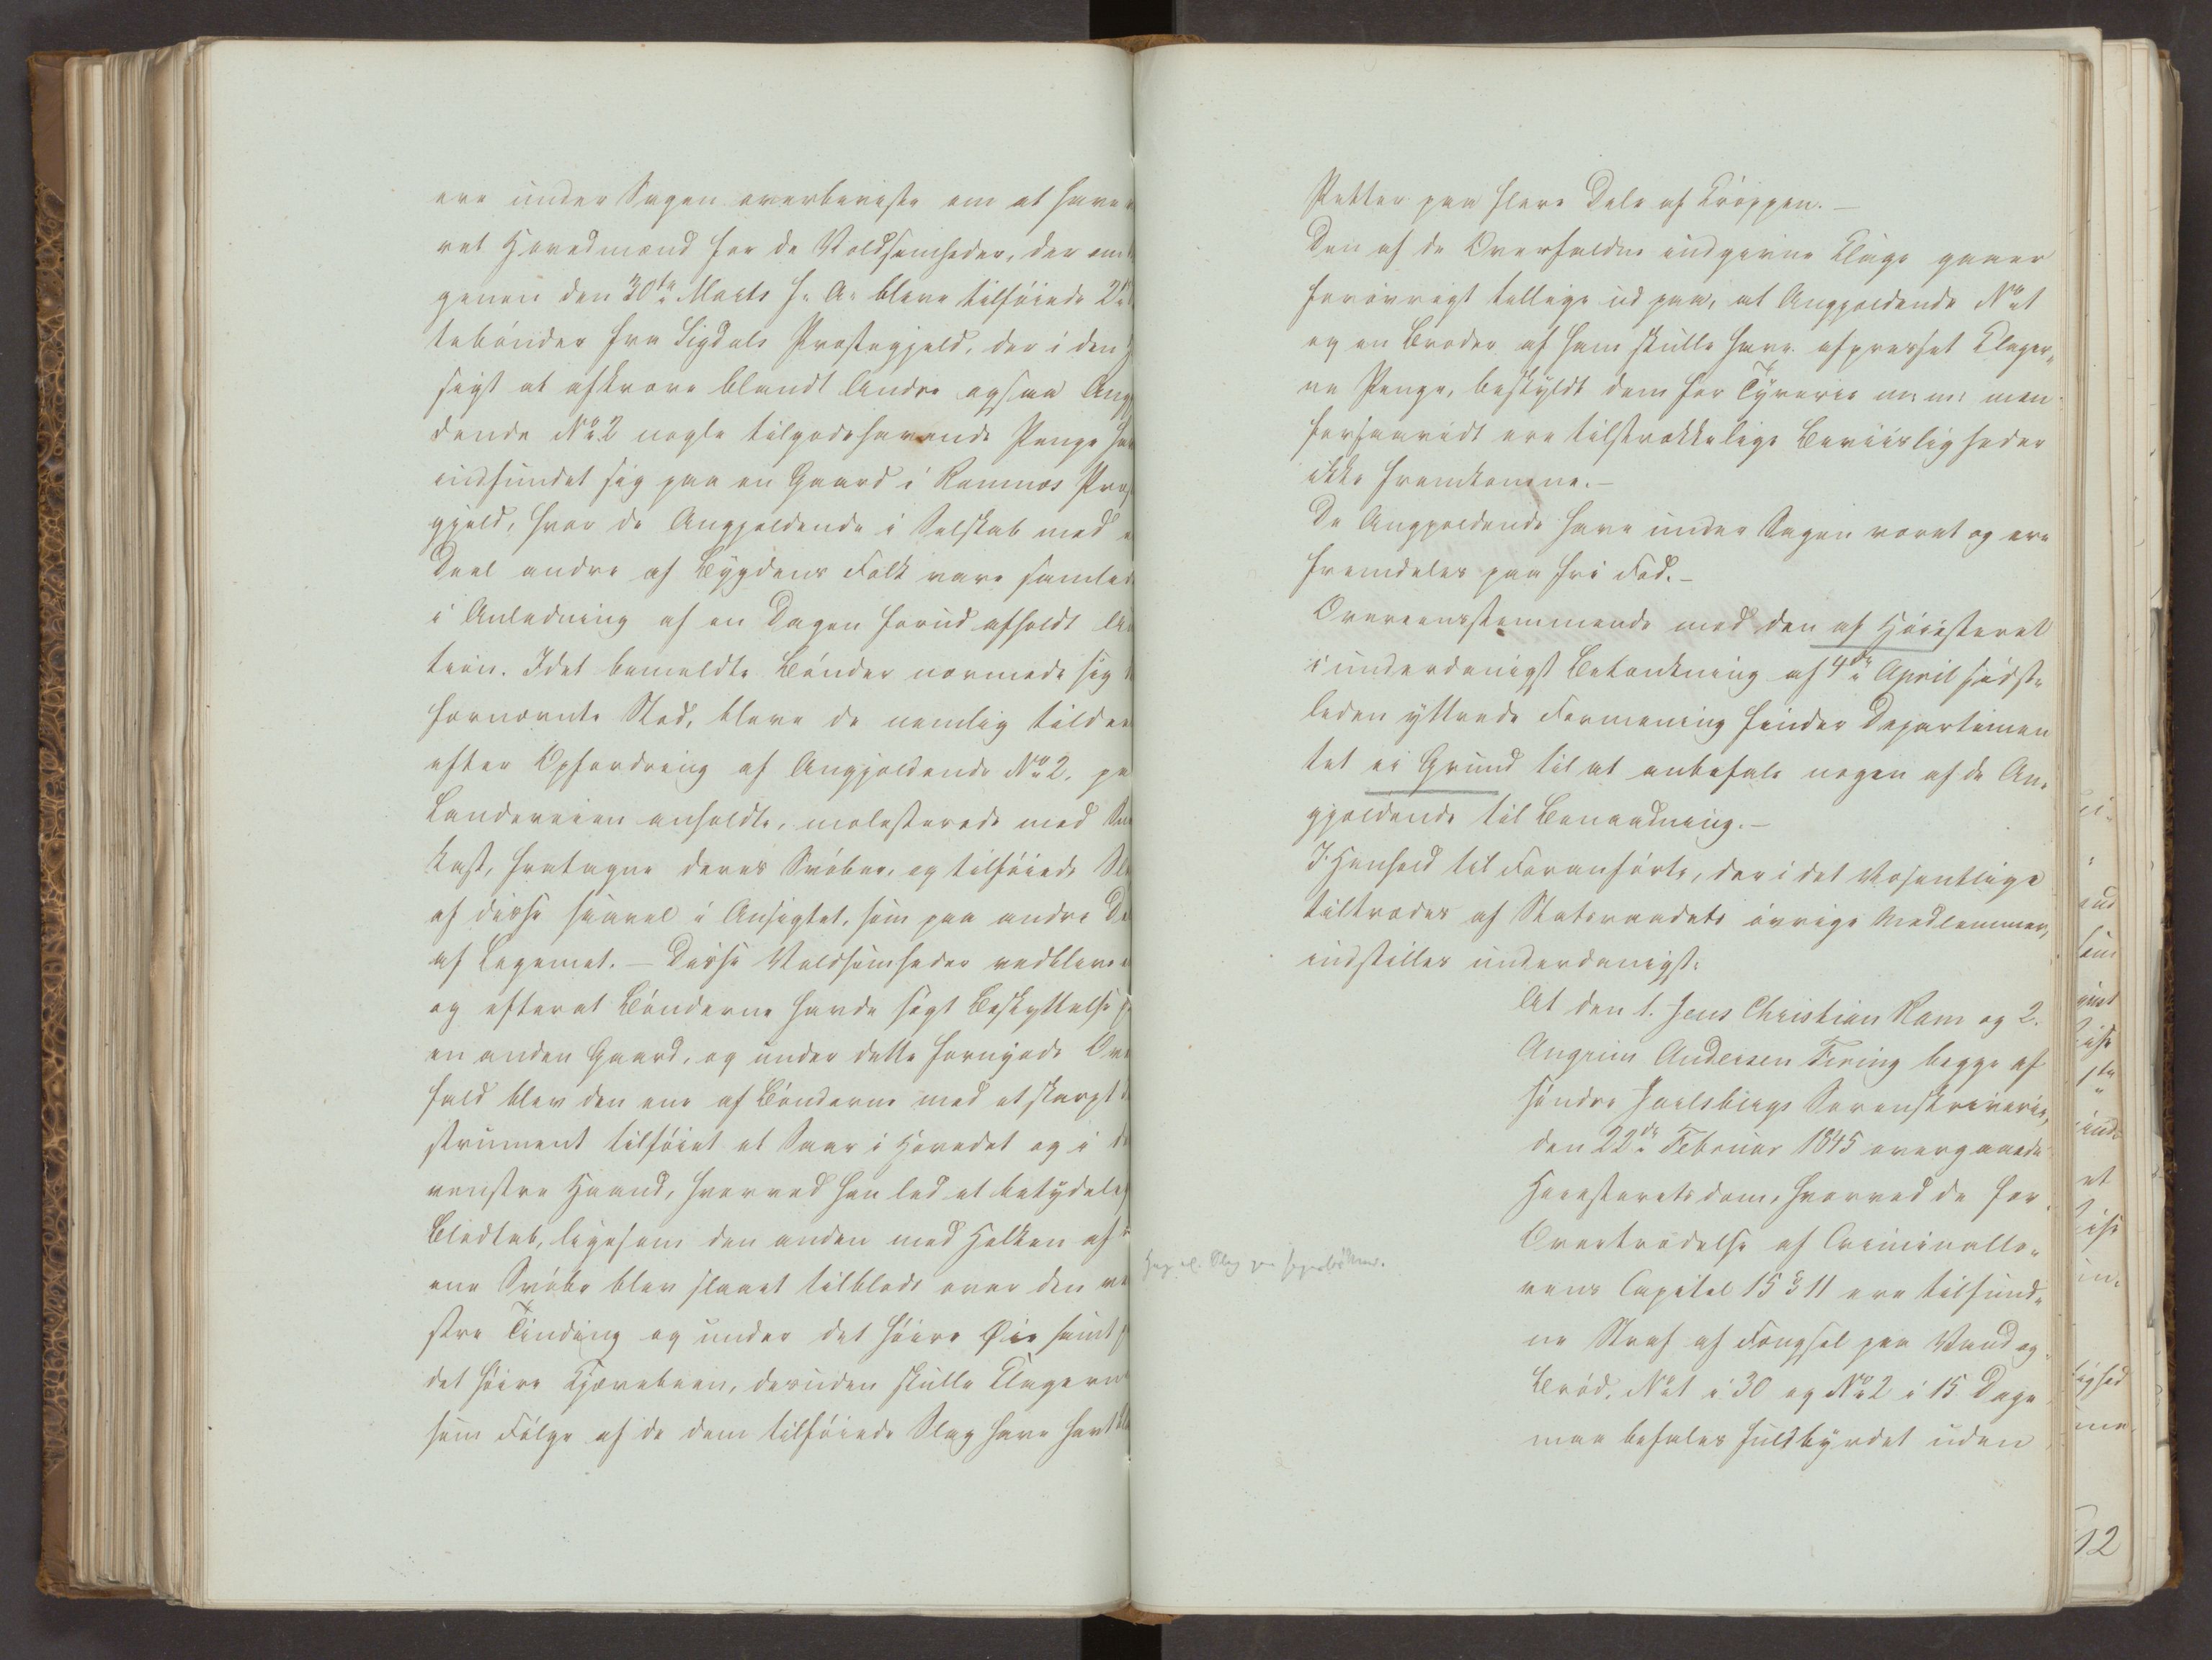 ere under Sagen overbeviste om at have
ret Hovedmænd for de Voldsomheder, der om
genen den 30te Marts f. A. bleve tilføiede 2de
tebønder fra Sigdals Præstegjeld, der i den
sigt at afkræve blandt Andre ogsaa Ang
dende No 2 nogle tilgodehavende Penge ha
indfundet sig paa en Gaard i Ramnæs Præ
gjeld, hvor de Angjældende i Selskab med
Deel andre af Bygdens Folk vare samlede
i Anledning af en Dagen forud afholdt Au
tion. Idet bemeldte Bønder nærmede sig
fornævnte Sted, bleve de nemlig tildee
efter Opfordring af Angjældende No 2. pa
Landeveien anholdte, molesterede med
kast, fratagne deres Svøber, og tilføiede Sl
af disse saavel i Ansigtet, som paa andre De
af Legemet. – Disse Voldsomheder vedbleve
og efterat Bønderne havde søgt Beskyttelse
en anden Gaard, og under dette fornyede Ove
fald blev den ene af Bønderne med et skarpt
strument tilføiet et Saar i Hovedet og i d
venstre Haand, hvorved han led et betydelig
Blodtab, ligesom den anden med Halken af
ene Svøbe blev slaaet tilblods over den ve
stre Tinding og under det høire Øie samt
det høire Kjævebeen, desuden skulle Klagerne
som Følge af de dem tilføiede Slag have havt
Pletter paa flere Dele af Kroppen. –
Den af de Overfaldne indgivne Klage gaaer
forøvrigt tillige ud paa, at Angjældende No 1
og en Broder af ham skulle have afpresset Klager„
ne Penge, beskyldt dem for Tyverie m: m: men
forsaavidt ere tilstrækkelige Beviisligheder
ikke fremkomne. –
De Angjældende have under Sagen været og ere
fremdeles paa fri Fod. –
Overeensstemmende med den af Høiesteret
i underdanigst Betænkning af 4de April sidst„
leden yttrede Formening finder Departemen
tet ei Grund til at anbefale nogen af de An„
gjældende til Benaadning. –
I Henhold til Foranførte, der i det Væsentlige
tiltrædes af Statsraadets øvrige Medlemmer,
indstilles underdanigst:
At den 1. Jens Christian Ram og 2.
Angrim Andersen Firing begge af
søndre Jarlsbergs Sorenskriverie,
den 22de Februar 1845 overgaaede
Høiesteretsdom, hvorved de for
Overtrædelse af Criminallo„
vens Capitel 15 § 11 ere tilfund„
ne Straf af Fængsel paa Vand og
Brød, No 1 i 30 og No 2 i 15 Dage
maa befales fuldbyrdet uden
12